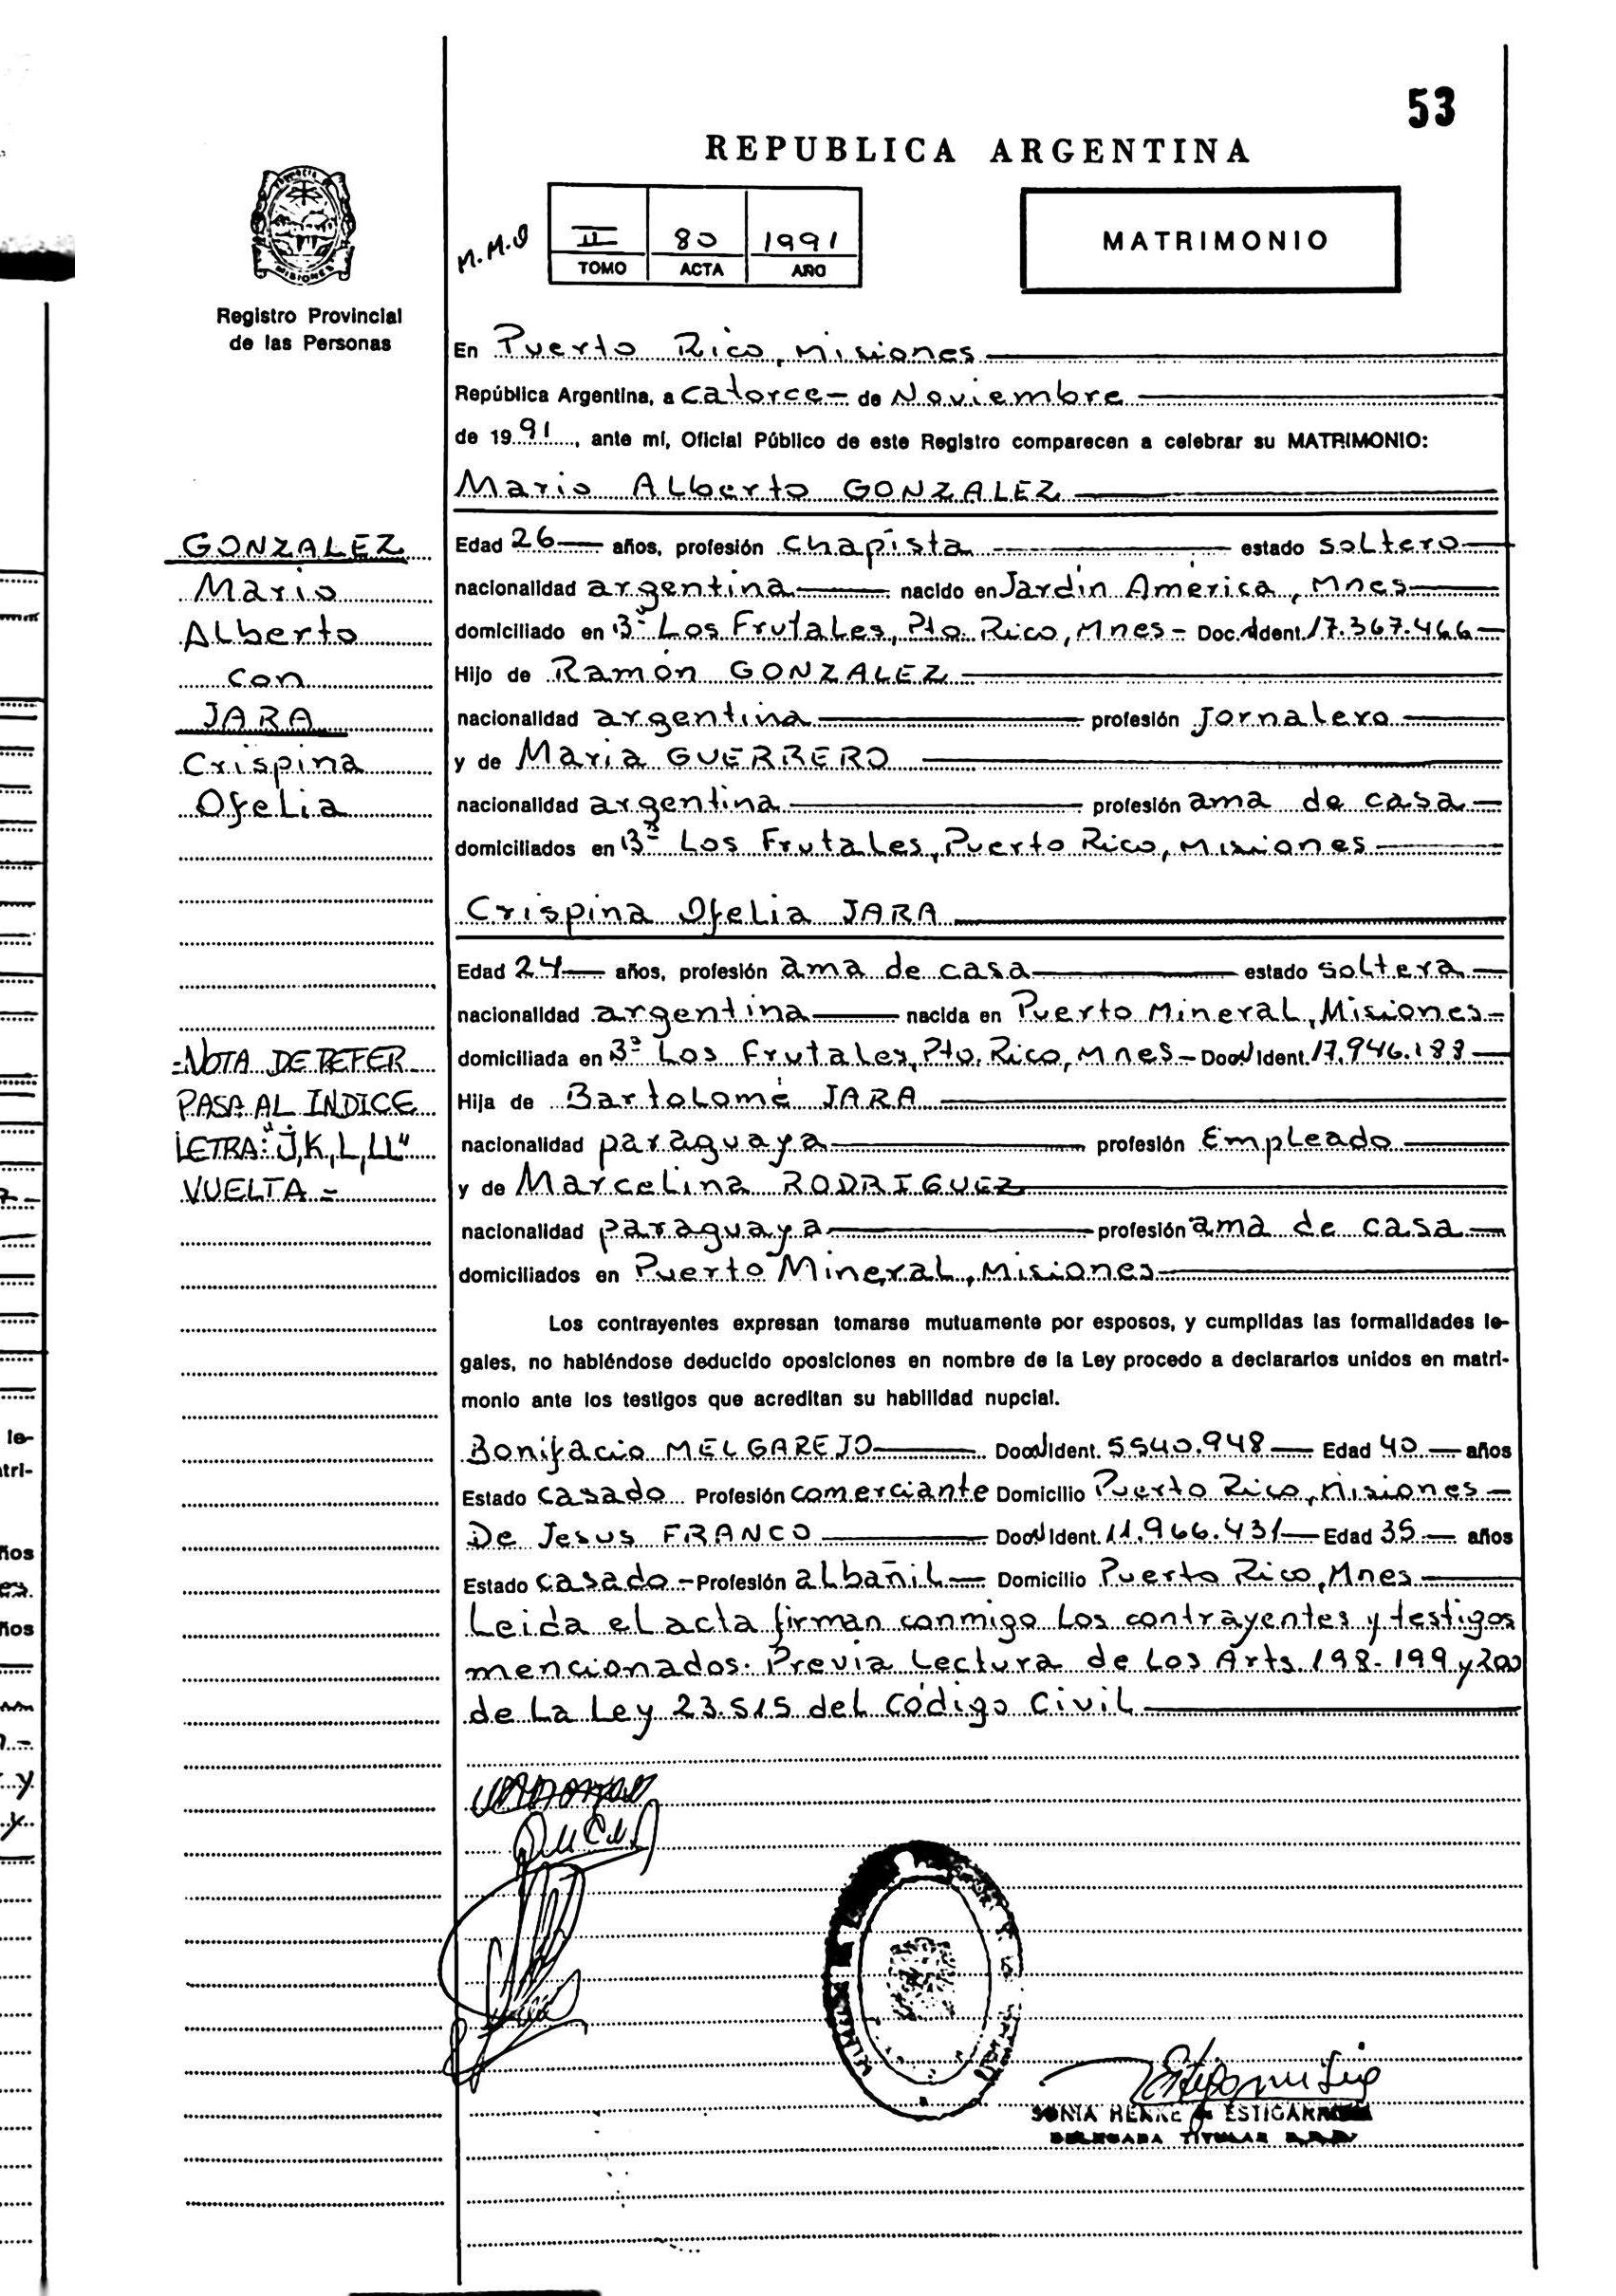 53
REPUBLICA ARGENTINA
MISIONES
Registro Provincial
de las Personas
II 80 1991
TOMO ACTA AÑO
MATRIMONIO
En Puerto Rico, Misiones
República Argentina, a catorce - de Noviembre
de 1991, ante mí, Oficial Público de este Registro comparecen a celebrar su MATRIMONIO:
Mario Alberto GONZALEZ
GONZALEZ
Mario
Alberto
con
JARA
Crispina
Ofelia
Edad 26 años, profesión chapista estado soltero
nacionalidad argentina nacido en Jardín América, Mnes
domiciliado en Bº Los Frutales, Pto. Rico, Mnes - Doc. Ident. 17.367.466
Hijo de Ramón GONZALEZ
nacionalidad argentina profesión Jornalero
y de Maria GUERRERO
nacionalidad argentina profesión ama de casa
domiciliados en Bº Los Frutales, Puerto Rico, Misiones
Crispina Ofelia JARA
Edad 24 años, profesión ama de casa estado soltera
nacionalidad argentina nacida en Puerto Mineral, Misiones -
domiciliada en Bº Los Frutales, Pto. Rico, Mnes - Doc. Ident. 17.946.188
Hija de Bartolomé JARA
nacionalidad paraguaya profesión Empleado
y de Marcelina RODRIGUEZ
nacionalidad paraguaya profesión ama de casa
domiciliados en Puerto Mineral, Misiones
=NOTA DE REFER
PASA AL INDICE
LETRA: "J,K,L,LL"
VUELTA =
Los contrayentes expresan tomarse mutuamente por esposos, y cumplidas las formalidades le-
gales, no habiéndose deducido oposiciones en nombre de la Ley procedo a declararlos unidos en matri-
monio ante los testigos que acreditan su habilidad nupcial.
Bonifacio MELGAREJO Doc. Ident. 5540.948 Edad 40 años
Estado casado Profesión comerciante Domicilio Puerto Rico, Misiones -
De Jesus FRANCO Doc. Ident. 11.966.431 Edad 35 años
Estado casado - Profesión albañil Domicilio Puerto Rico, Mnes
Leida el acta firman conmigo los contrayentes y testigos
mencionados. Previa Lectura de los Arts. 198-199 y 200
de la Ley 23.515 del Código Civil
SONIA HENKE de ESTIGARRIBIA
DELEGADA TITULAR